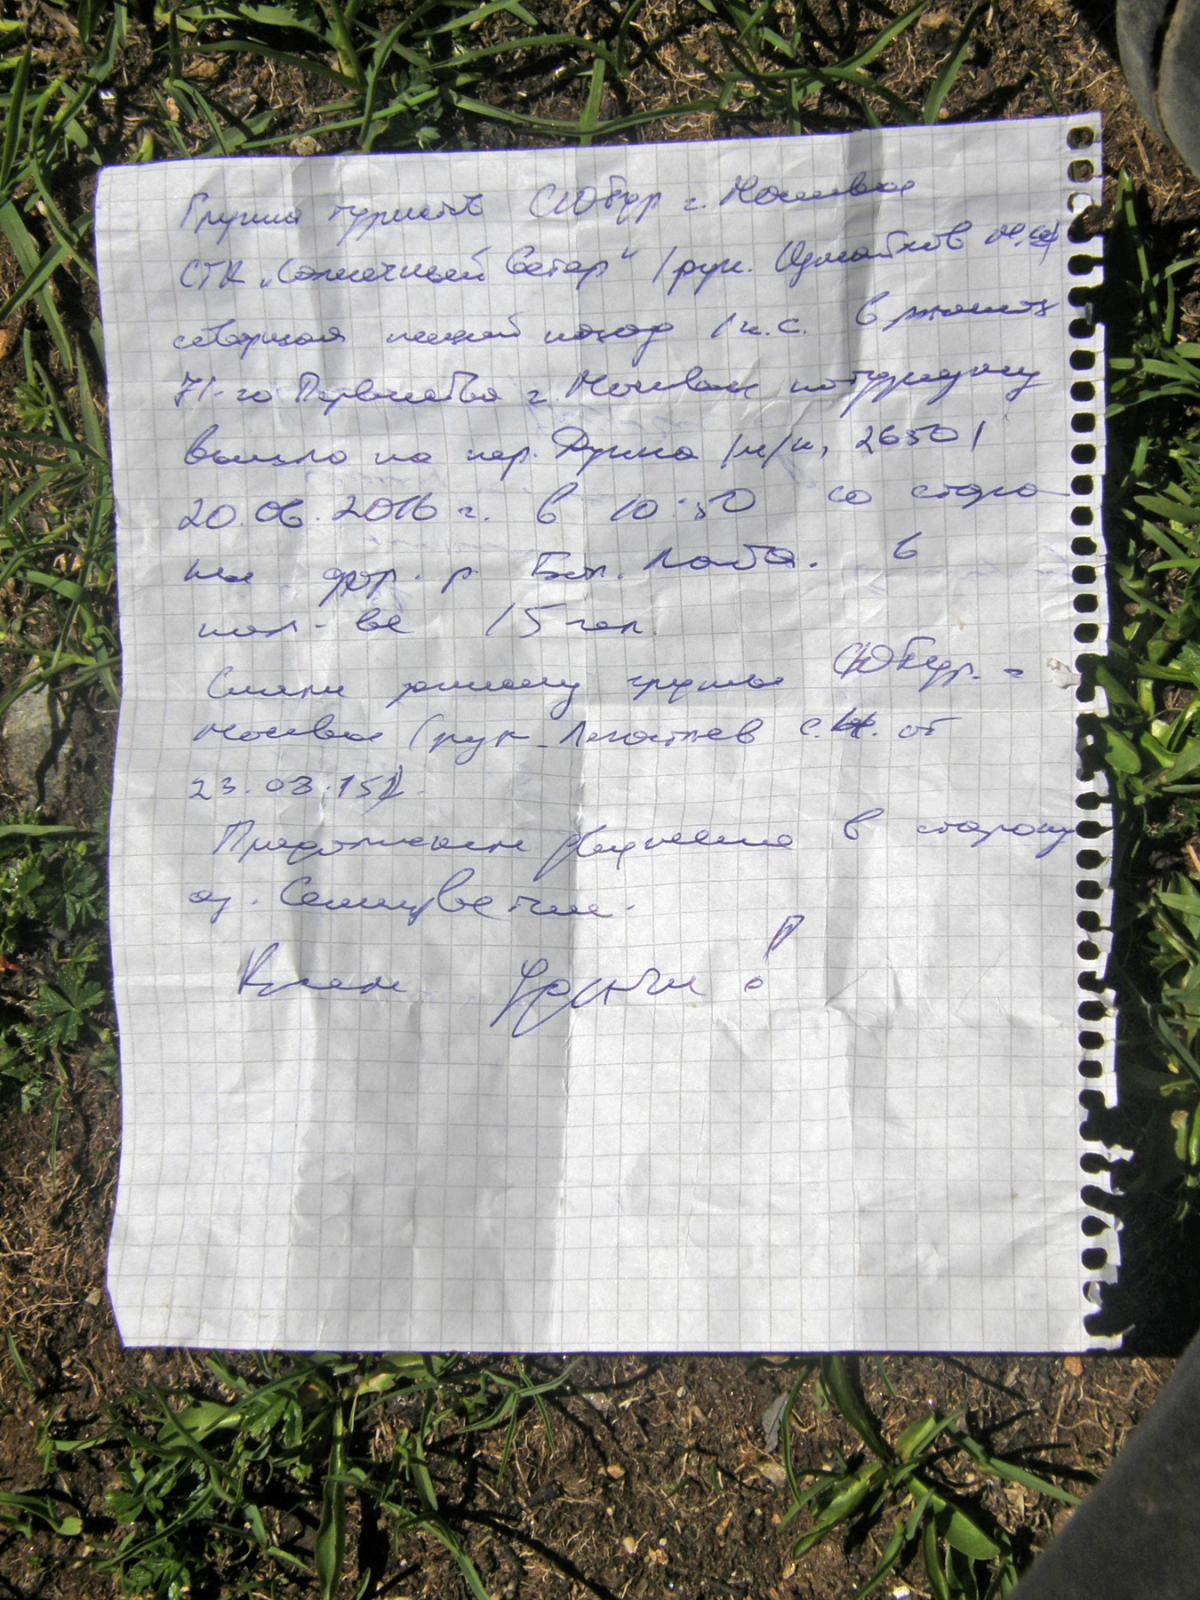 Группа туристов СЮТур г. Москвы
СТК „Солнечный Ветер" /рук.
совершая пеший поход 1 к.с. в
71-го Первенства г. Москвы по туризму
вышла на пер. Дукка /н/к, 2650/
20.06.2016 г. в 10:50 со сторо
ны дол. р. Бол. Лаба. в
кол-ве 15 чел.
Сняли записку группы СЮТур. г.
Москвы (рук. от
23.08.15).
Продолжаем движение в сторону
оз. Семицветик.
Всем Удачи!